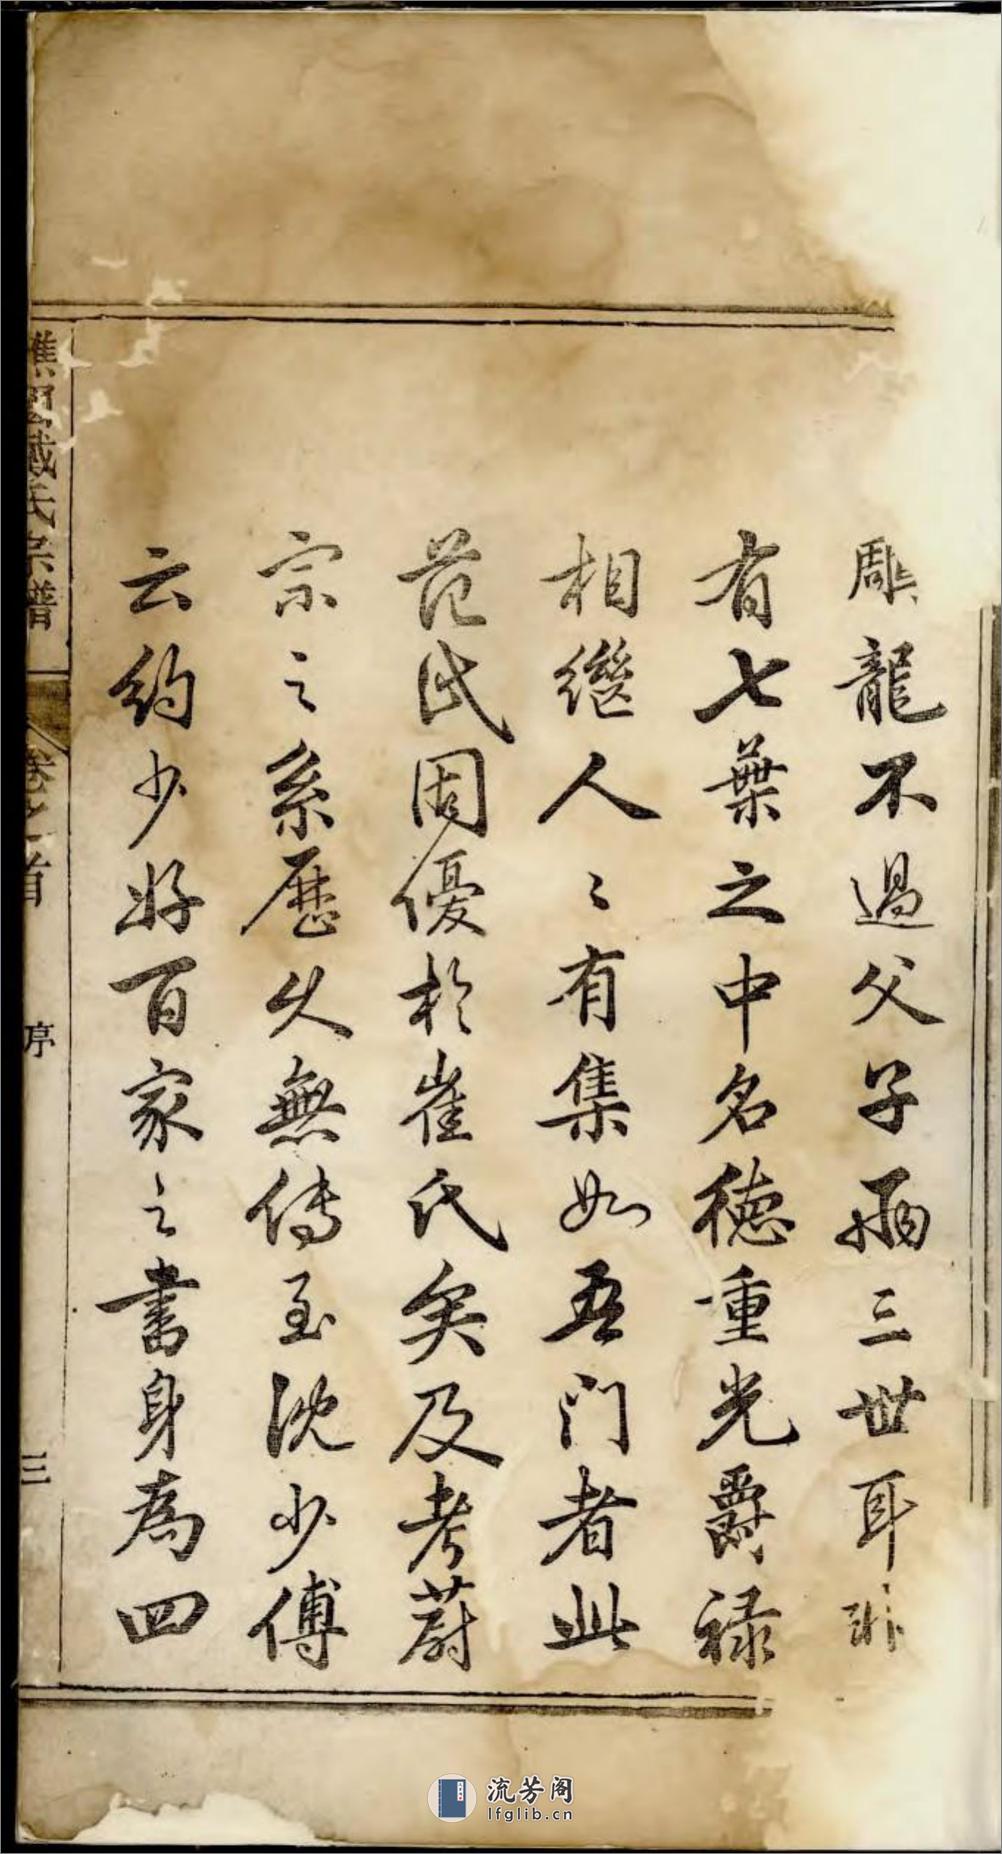 雕龍不過父子兩三世耳非
有七葉之中名德重光爵祿
相繼人〻有集如吾門者此
范氏固優於崔氏矣及考蔚
宗之系歷久無傳至沈少傅
云約少好百家之書身為四
譙國戴氏宗譜
卷之首
序
三
流芳阁
lfglib.cn